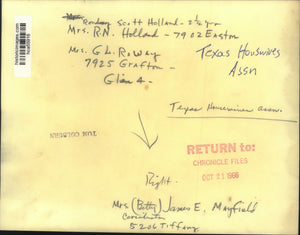 Scott Holland - 2½ yr
Mrs. R.N. Holland - 7902 Easton
Mrs. G.L. Rowsey
7925 Grafton -
Glen 4 -
Texas Housewives
Assn
Texas Housewives assn.
TOM COLBURN
RETURN to:
CHRONICLE FILES
OCT 21 1966
Right.
Mrs (Betty) James E. Mayfield
5206 Tiffany